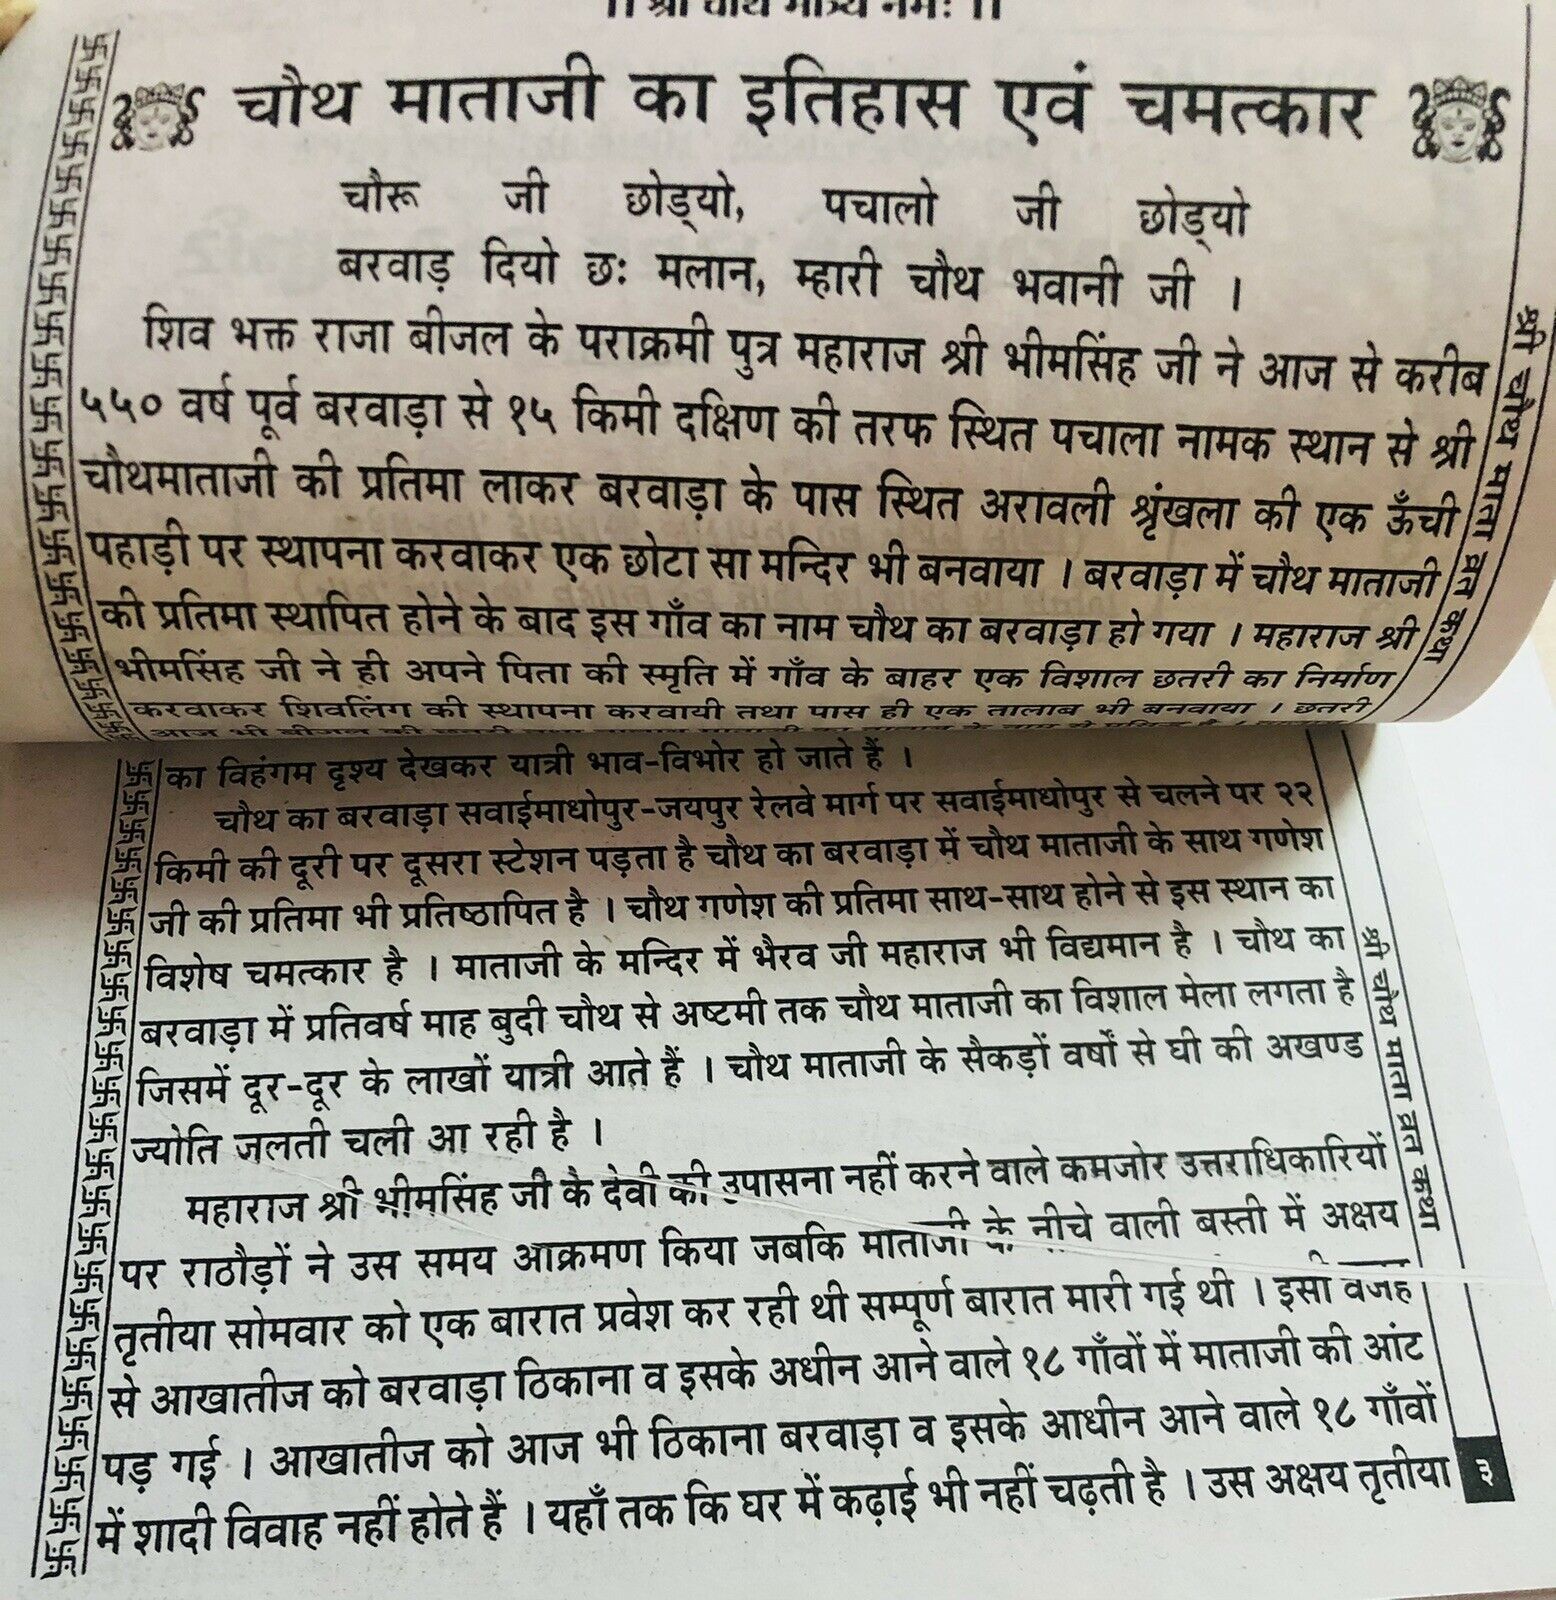 ।। श्री चौथ मात्र्यै नमः ।।
चौथ माताजी का इतिहास एवं चमत्कार
चौरू जी छोड्यो, पचालो जी छोड्यो
बरवाड़ दियो छः मलान, म्हारी चौथ भवानी जी ।
शिव भक्त राजा बीजल के पराक्रमी पुत्र महाराज श्री भीमसिंह जी ने आज से करीब
५५० वर्ष पूर्व बरवाड़ा से १५ किमी दक्षिण की तरफ स्थित पचाला नामक स्थान से श्री
चौथमाताजी की प्रतिमा लाकर बरवाड़ा के पास स्थित अरावली श्रृंखला की एक ऊँची
पहाड़ी पर स्थापना करवाकर एक छोटा सा मन्दिर भी बनवाया । बरवाड़ा में चौथ माताजी
की प्रतिमा स्थापित होने के बाद इस गाँव का नाम चौथ का बरवाड़ा हो गया । महाराज श्री
भीमसिंह जी ने ही अपने पिता की स्मृति में गाँव के बाहर एक विशाल छतरी का निर्माण
करवाकर शिवलिंग की स्थापना करवायी तथा पास ही एक तालाब भी बनवाया । छतरी
आज भी बीजल की छतरी तथा तालाब माताजी का तालाब के नाम से प्रसिद्ध है ।
श्री चौथ माता व्रत कथा
का विहंगम दृश्य देखकर यात्री भाव-विभोर हो जाते हैं ।
चौथ का बरवाड़ा सवाईमाधोपुर-जयपुर रेलवे मार्ग पर सवाईमाधोपुर से चलने पर २२
किमी की दूरी पर दूसरा स्टेशन पड़ता है चौथ का बरवाड़ा में चौथ माताजी के साथ गणेश
जी की प्रतिमा भी प्रतिष्ठापित है । चौथ गणेश की प्रतिमा साथ-साथ होने से इस स्थान का
विशेष चमत्कार है । माताजी के मन्दिर में भैरव जी महाराज भी विद्यमान है । चौथ का
बरवाड़ा में प्रतिवर्ष माह बुदी चौथ से अष्टमी तक चौथ माताजी का विशाल मेला लगता है
जिसमें दूर-दूर के लाखों यात्री आते हैं । चौथ माताजी के सैकड़ों वर्षों से घी की अखण्ड
ज्योति जलती चली आ रही है ।
महाराज श्री भीमसिंह जी कै देवी की उपासना नहीं करने वाले कमजोर उत्तराधिकारियों
पर राठौड़ों ने उस समय आक्रमण किया जबकि माताजी के नीचे वाली बस्ती में अक्षय
तृतीया सोमवार को एक बारात प्रवेश कर रही थी सम्पूर्ण बारात मारी गई थी । इसी वजह
से आखातीज को बरवाड़ा ठिकाना व इसके अधीन आने वाले १८ गाँवों में माताजी की आंट
पड़ गई । आखातीज को आज भी ठिकाना बरवाड़ा व इसके आधीन आने वाले १८ गाँवों
में शादी विवाह नहीं होते हैं । यहाँ तक कि घर में कढ़ाई भी नहीं चढ़ती है । उस अक्षय तृतीया
श्री चौथ माता व्रत कथा
३